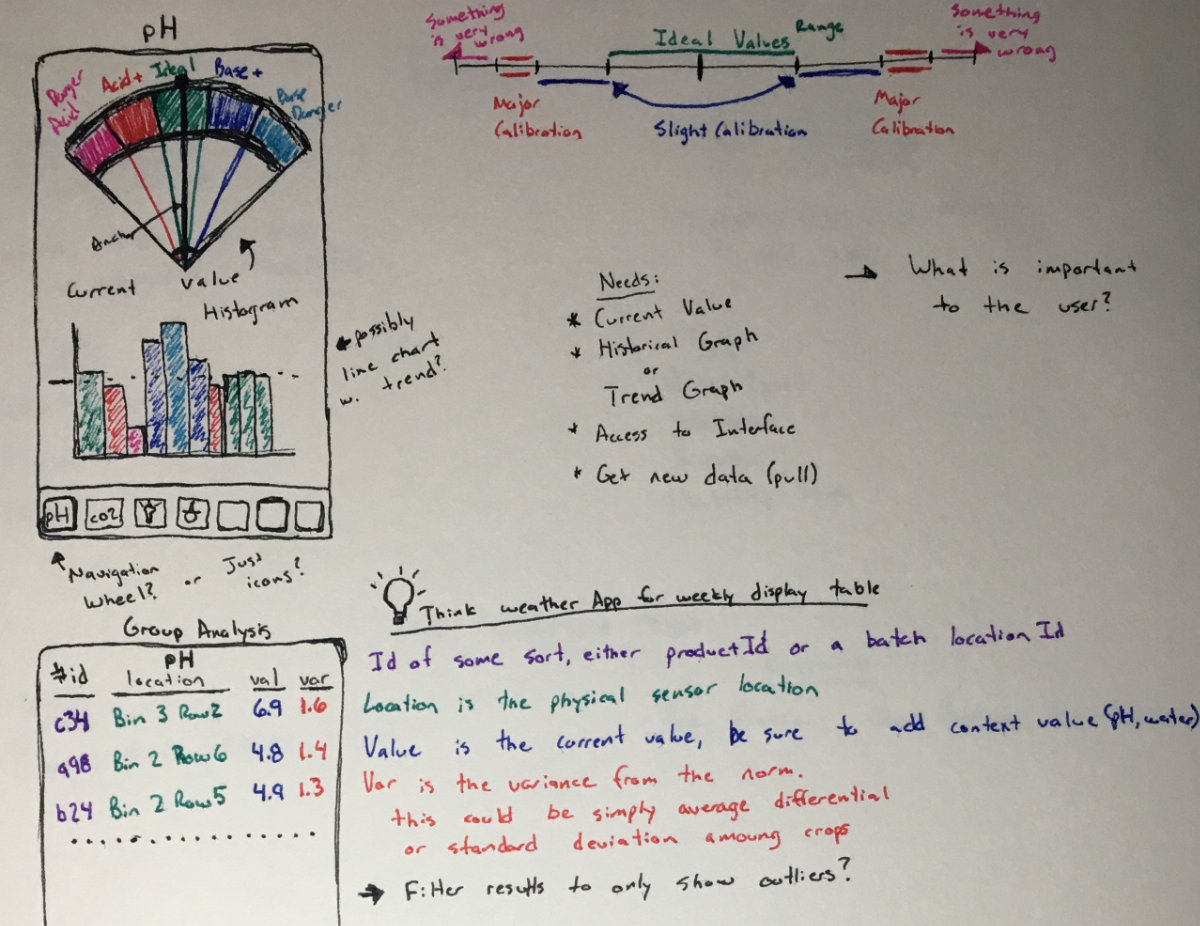 pH
Danger
Acid
Acid+
Ideal
Base +
Base
Danger
Anchor
Current Value
Histogram
possibly
line chart
w. trend?
pH
co2
Navigation
Wheel?
or
Just
icons?
Something
is very
wrong
Ideal Values Range
Something
is very
wrong
Major
Calibration
Slight Calibration
Major
Calibration
Needs:
* Current Value
* Historical Graph
or
Trend Graph
* Access to Interface
* Get new data (pull)
→ What is important
to the user?
Think weather App for weekly display table
Group Analysis
pH
#id location val var
c34 Bin 3 Row2 6.9 1.6
a98 Bin 2 Row6 4.8 1.4
b24 Bin 2 Row5 4.9 1.3
. . . . . . . . . . . . .
Id of some sort, either productId or a batch location Id
Location is the physical sensor location
Value is the current value, be sure to add context value (pH, water)
Var is the variance from the norm.
this could be simply average differential
or standard deviation amoung crops
→ Filter results to only show outliers?